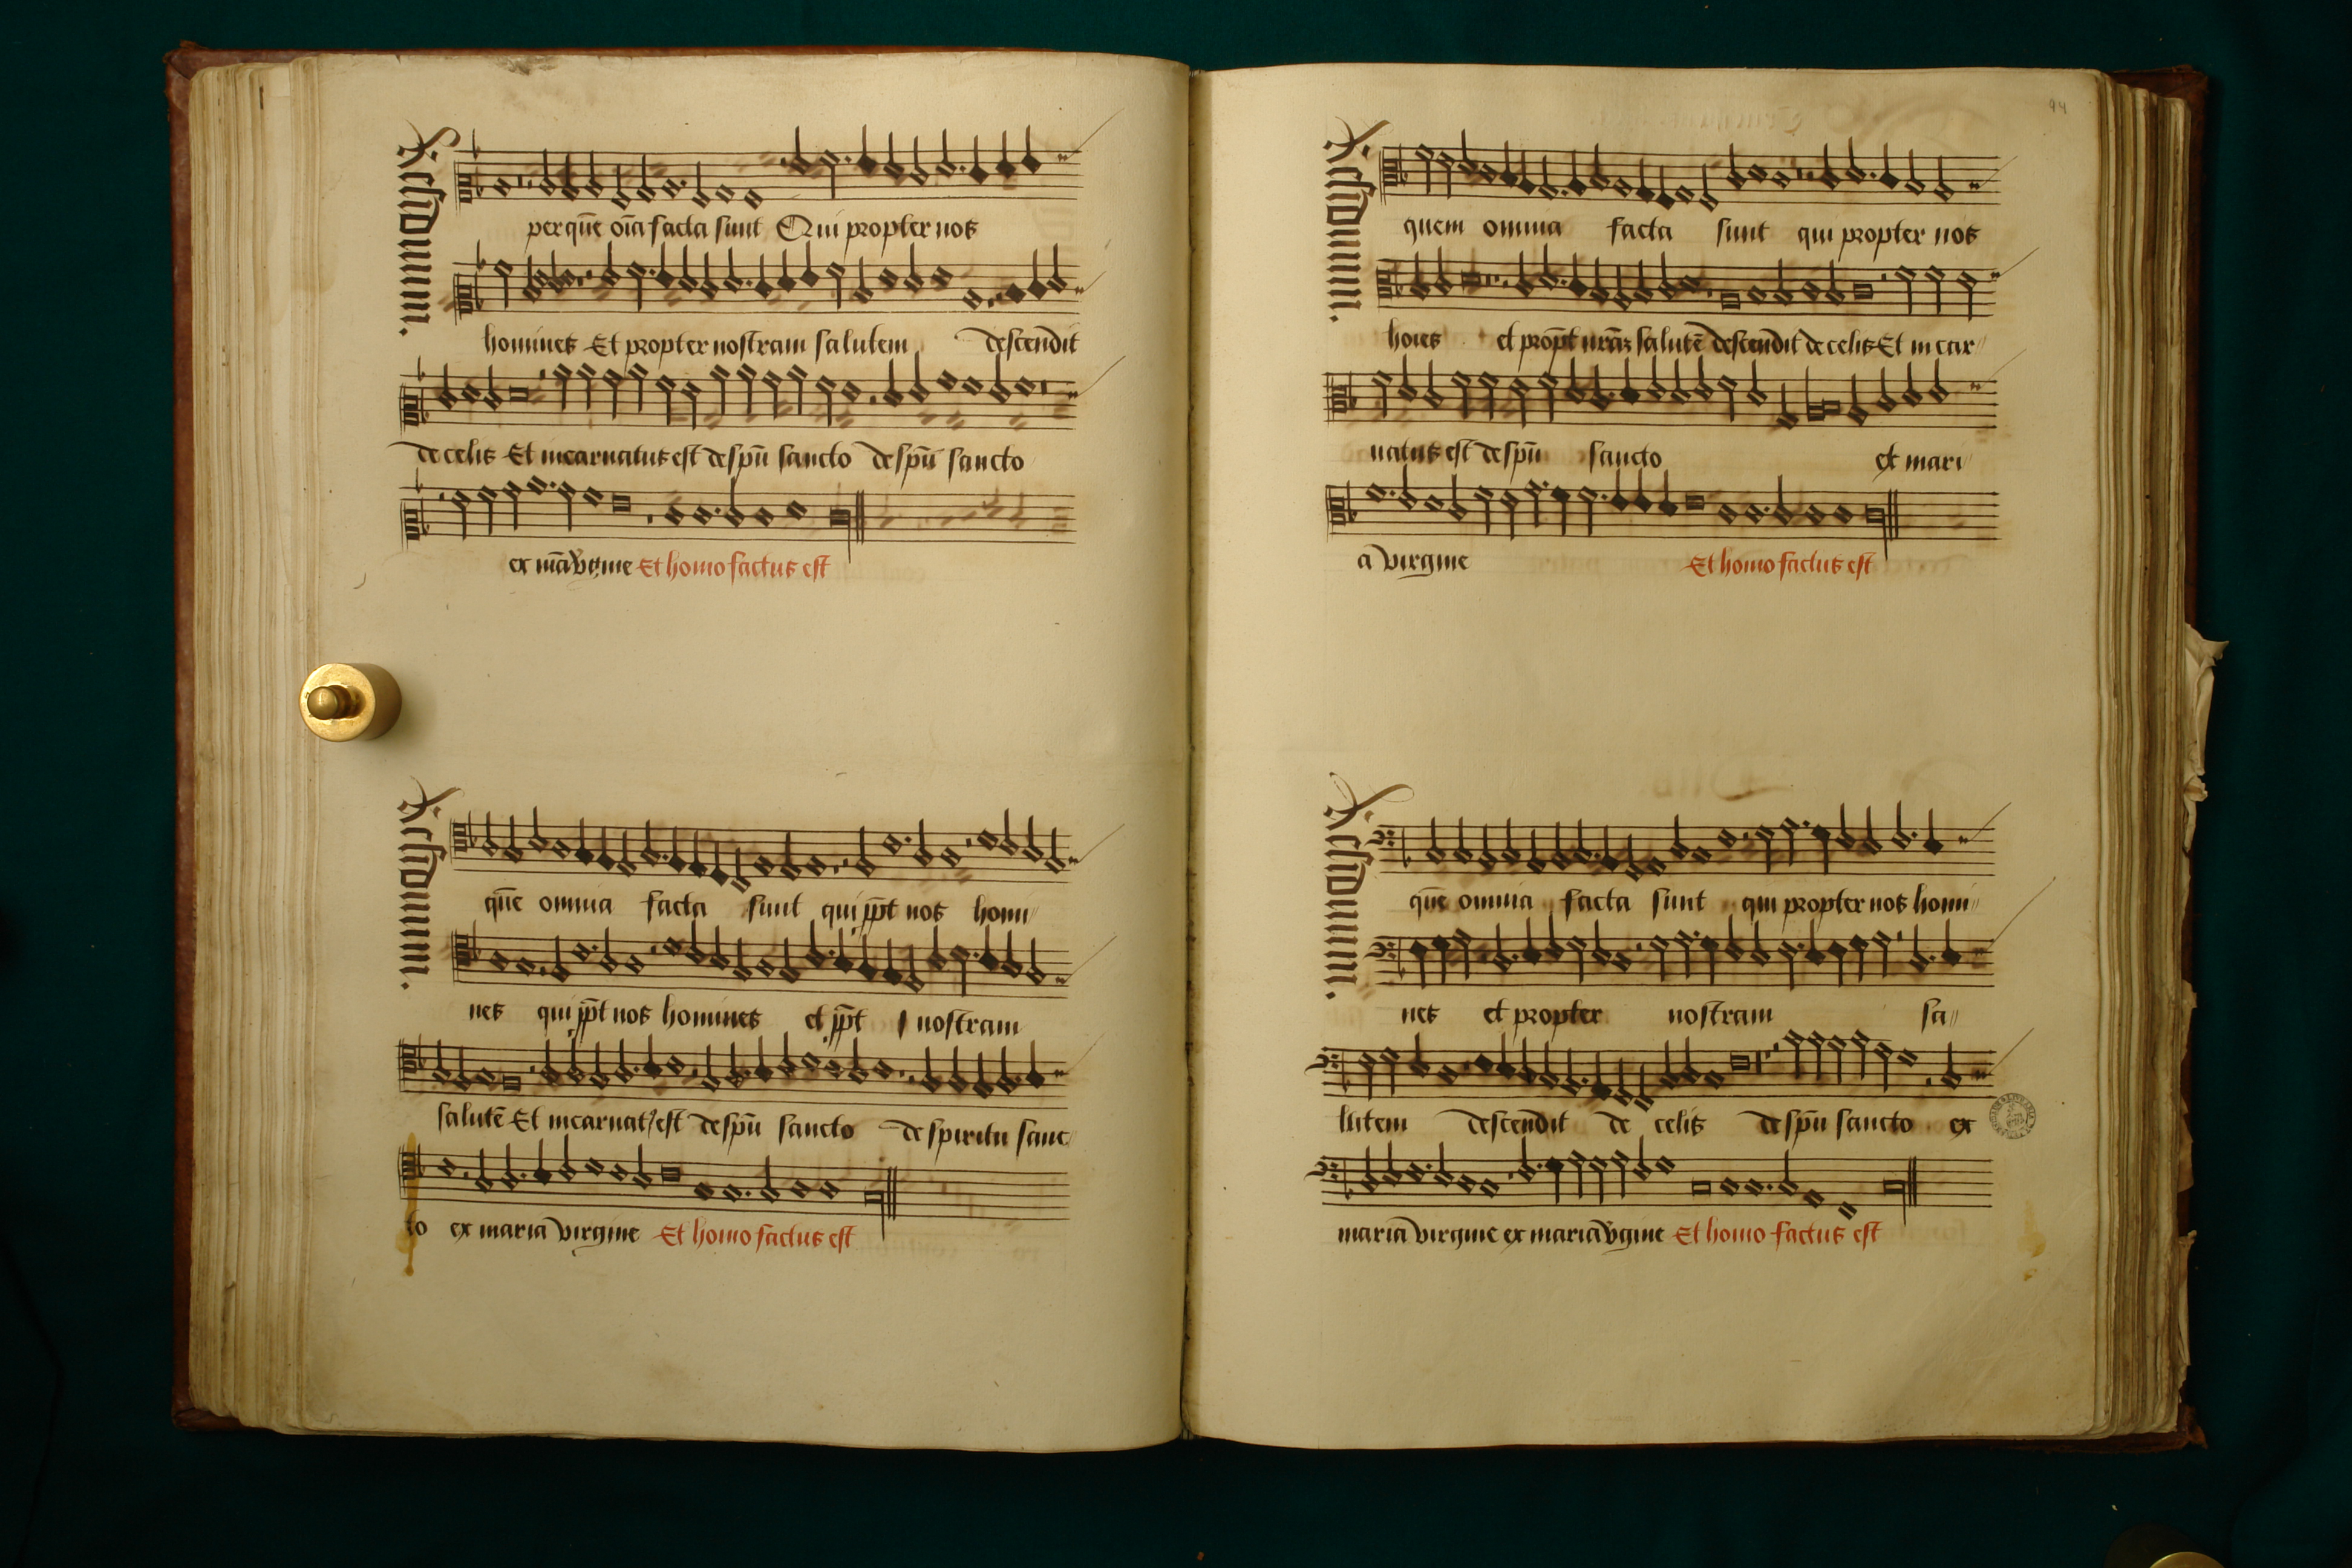 Residuum.
per quē oīa facta sunt Qui propter nos
homines Et propter nostram salutem descendit
de celis Et incarnatus est de spū sancto de spū sancto
ex mā v̄gine Et homo factus est
Residuum.
quē omnia facta sunt qui ꝓpt nos homi
nes qui ꝓpt nos homines et ꝓpt nostram
salutē Et incarnat9 est de spū sancto de spiritu sanc
to ex mariā virgine Et homo factus est
94
Residuum.
quem omnia facta sunt qui propter nos
hoīes et propt nrāʒ salutē descendit de celis Et in car
natus est de spū sancto ex mari
a virgine Et homo factus est
Residuum.
quē omnia facta sunt qui propter nos homi
nes et propter nostram sa
lutem descendit de celis de spū sancto ex
mariā virgine ex mariā v̄gine Et homo factus est